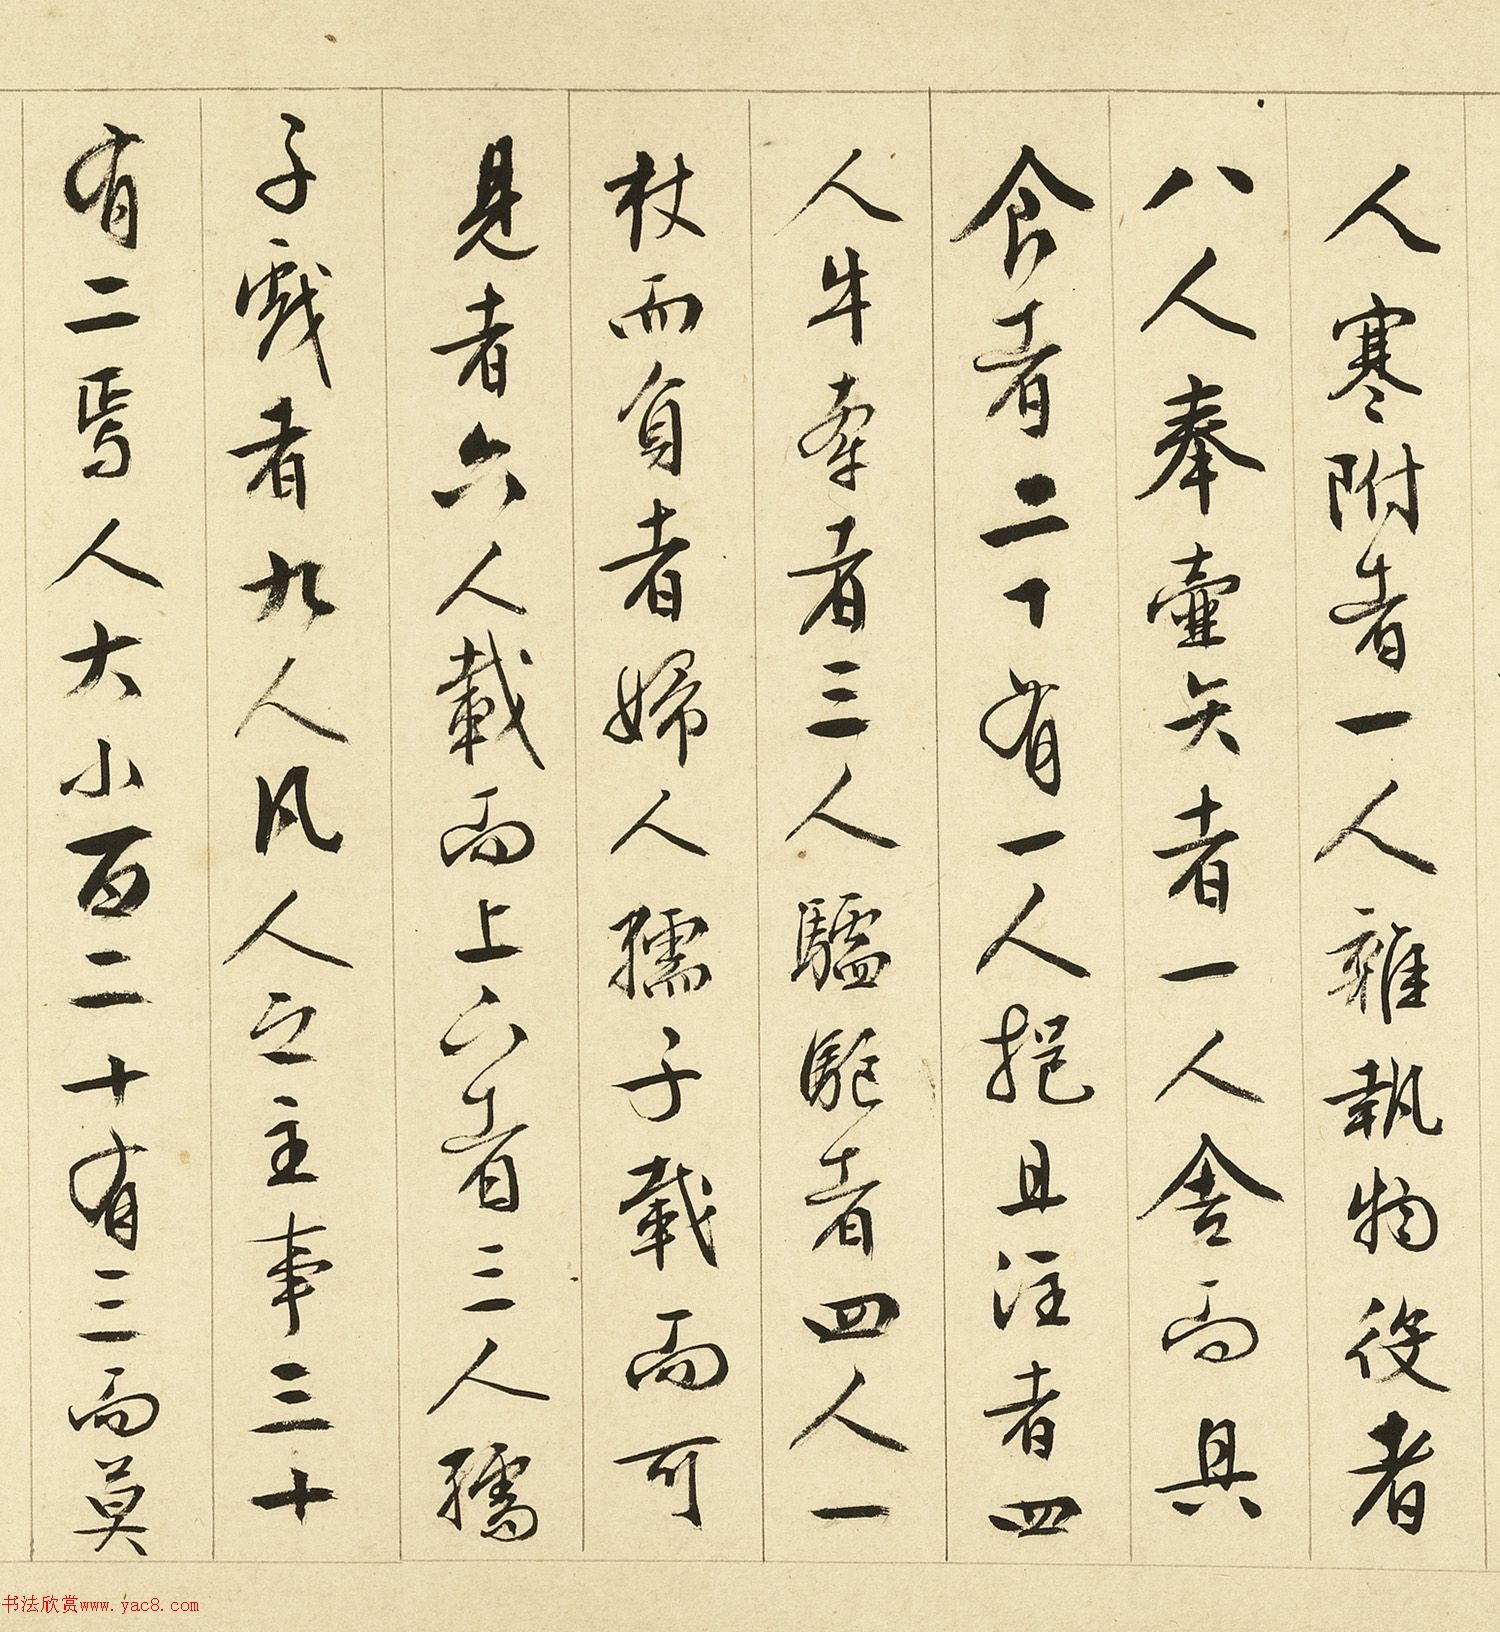 人寒附者一人雜執物役者
八人奉壺矢者一人舍而具
食者二丁有一人挹且注者四
人牛牽者三人驢驅者四人一
杖而負者婦人孺子載而可
見者六人載而上下者三人孺
子戲者九人凡人之主事三十
有二焉人大小百二十有三而莫
书法欣赏www.yac8.com